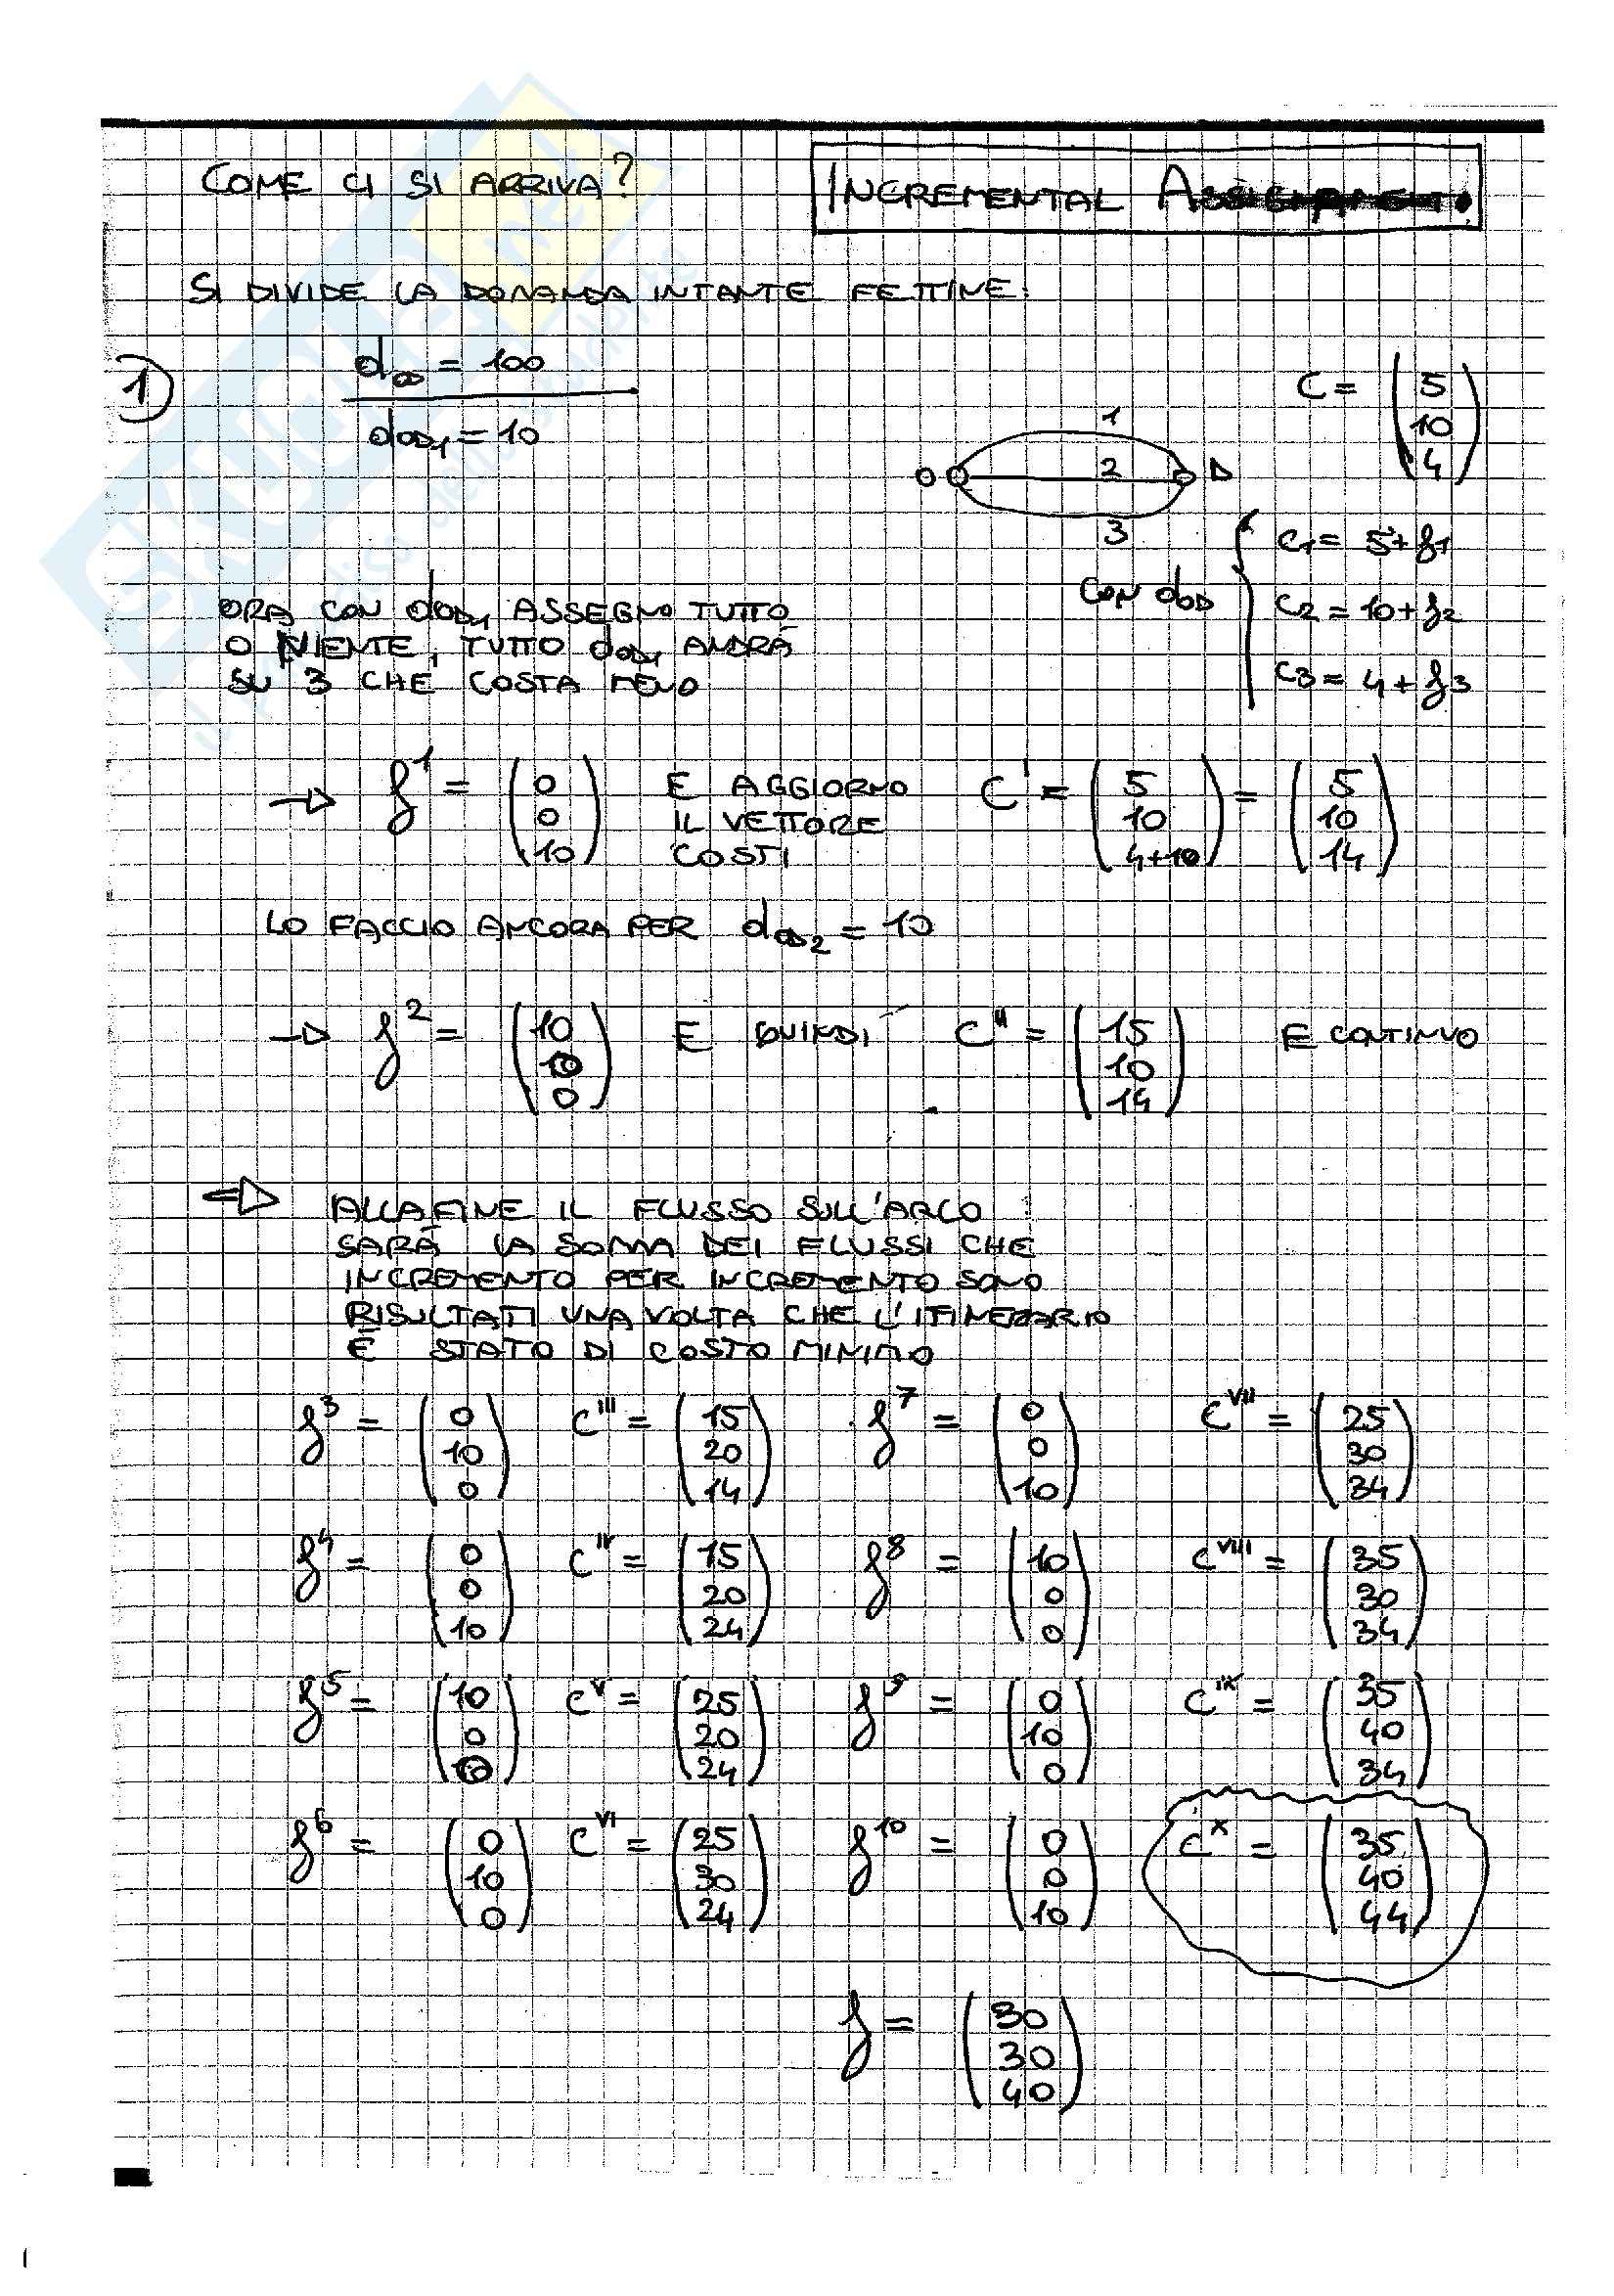 COME CI SI ARRIVA?
INCREMENTAL ASSIGNAMENT.
SI DIVIDE LA DOMANDA IN TANTE FETTINE:
1) dOD = 100
dOD1 = 10
C = (5 10 4)
1
O 2 D
3
CON dOD { C1 = 5+f1
C2 = 10+f2
C3 = 4+f3
ORA CON dOD1 ASSEGNO TUTTO
O NIENTE, TUTTO dOD1 ANDRÀ
SU 3 CHE COSTA MENO
→ f¹ = (0 0 10) E AGGIORNO IL VETTORE COSTI C' = (5 10 4+10) = (5 10 14)
LO FACCIO ANCORA PER dOD2 = 10
→ f² = (10 0 0) E QUINDI C'' = (15 10 14) E CONTINUO
⇒ ALLA FINE IL FLUSSO SULL'ARCO
SARÀ LA SOMMA DEI FLUSSI CHE
INCREMENTO PER INCREMENTO SONO
RISULTATI UNA VOLTA CHE L'ITINERARIO
È STATO DI COSTO MINIMO
f³ = (0 10 0) C^III = (15 20 14) f⁷ = (0 0 10) C^VII = (25 30 34)
f⁴ = (0 0 10) C^IV = (15 20 24) f⁸ = (10 0 0) C^VIII = (35 30 34)
f⁵ = (10 0 0) C^V = (25 20 24) f⁹ = (0 10 0) C^IX = (35 40 34)
f⁶ = (0 10 0) C^VI = (25 30 24) f¹⁰ = (0 0 10) C^X = (35 40 44)
f = (30 30 40)